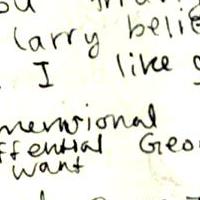 larry belie
I like
mensional
ffential Geo
want